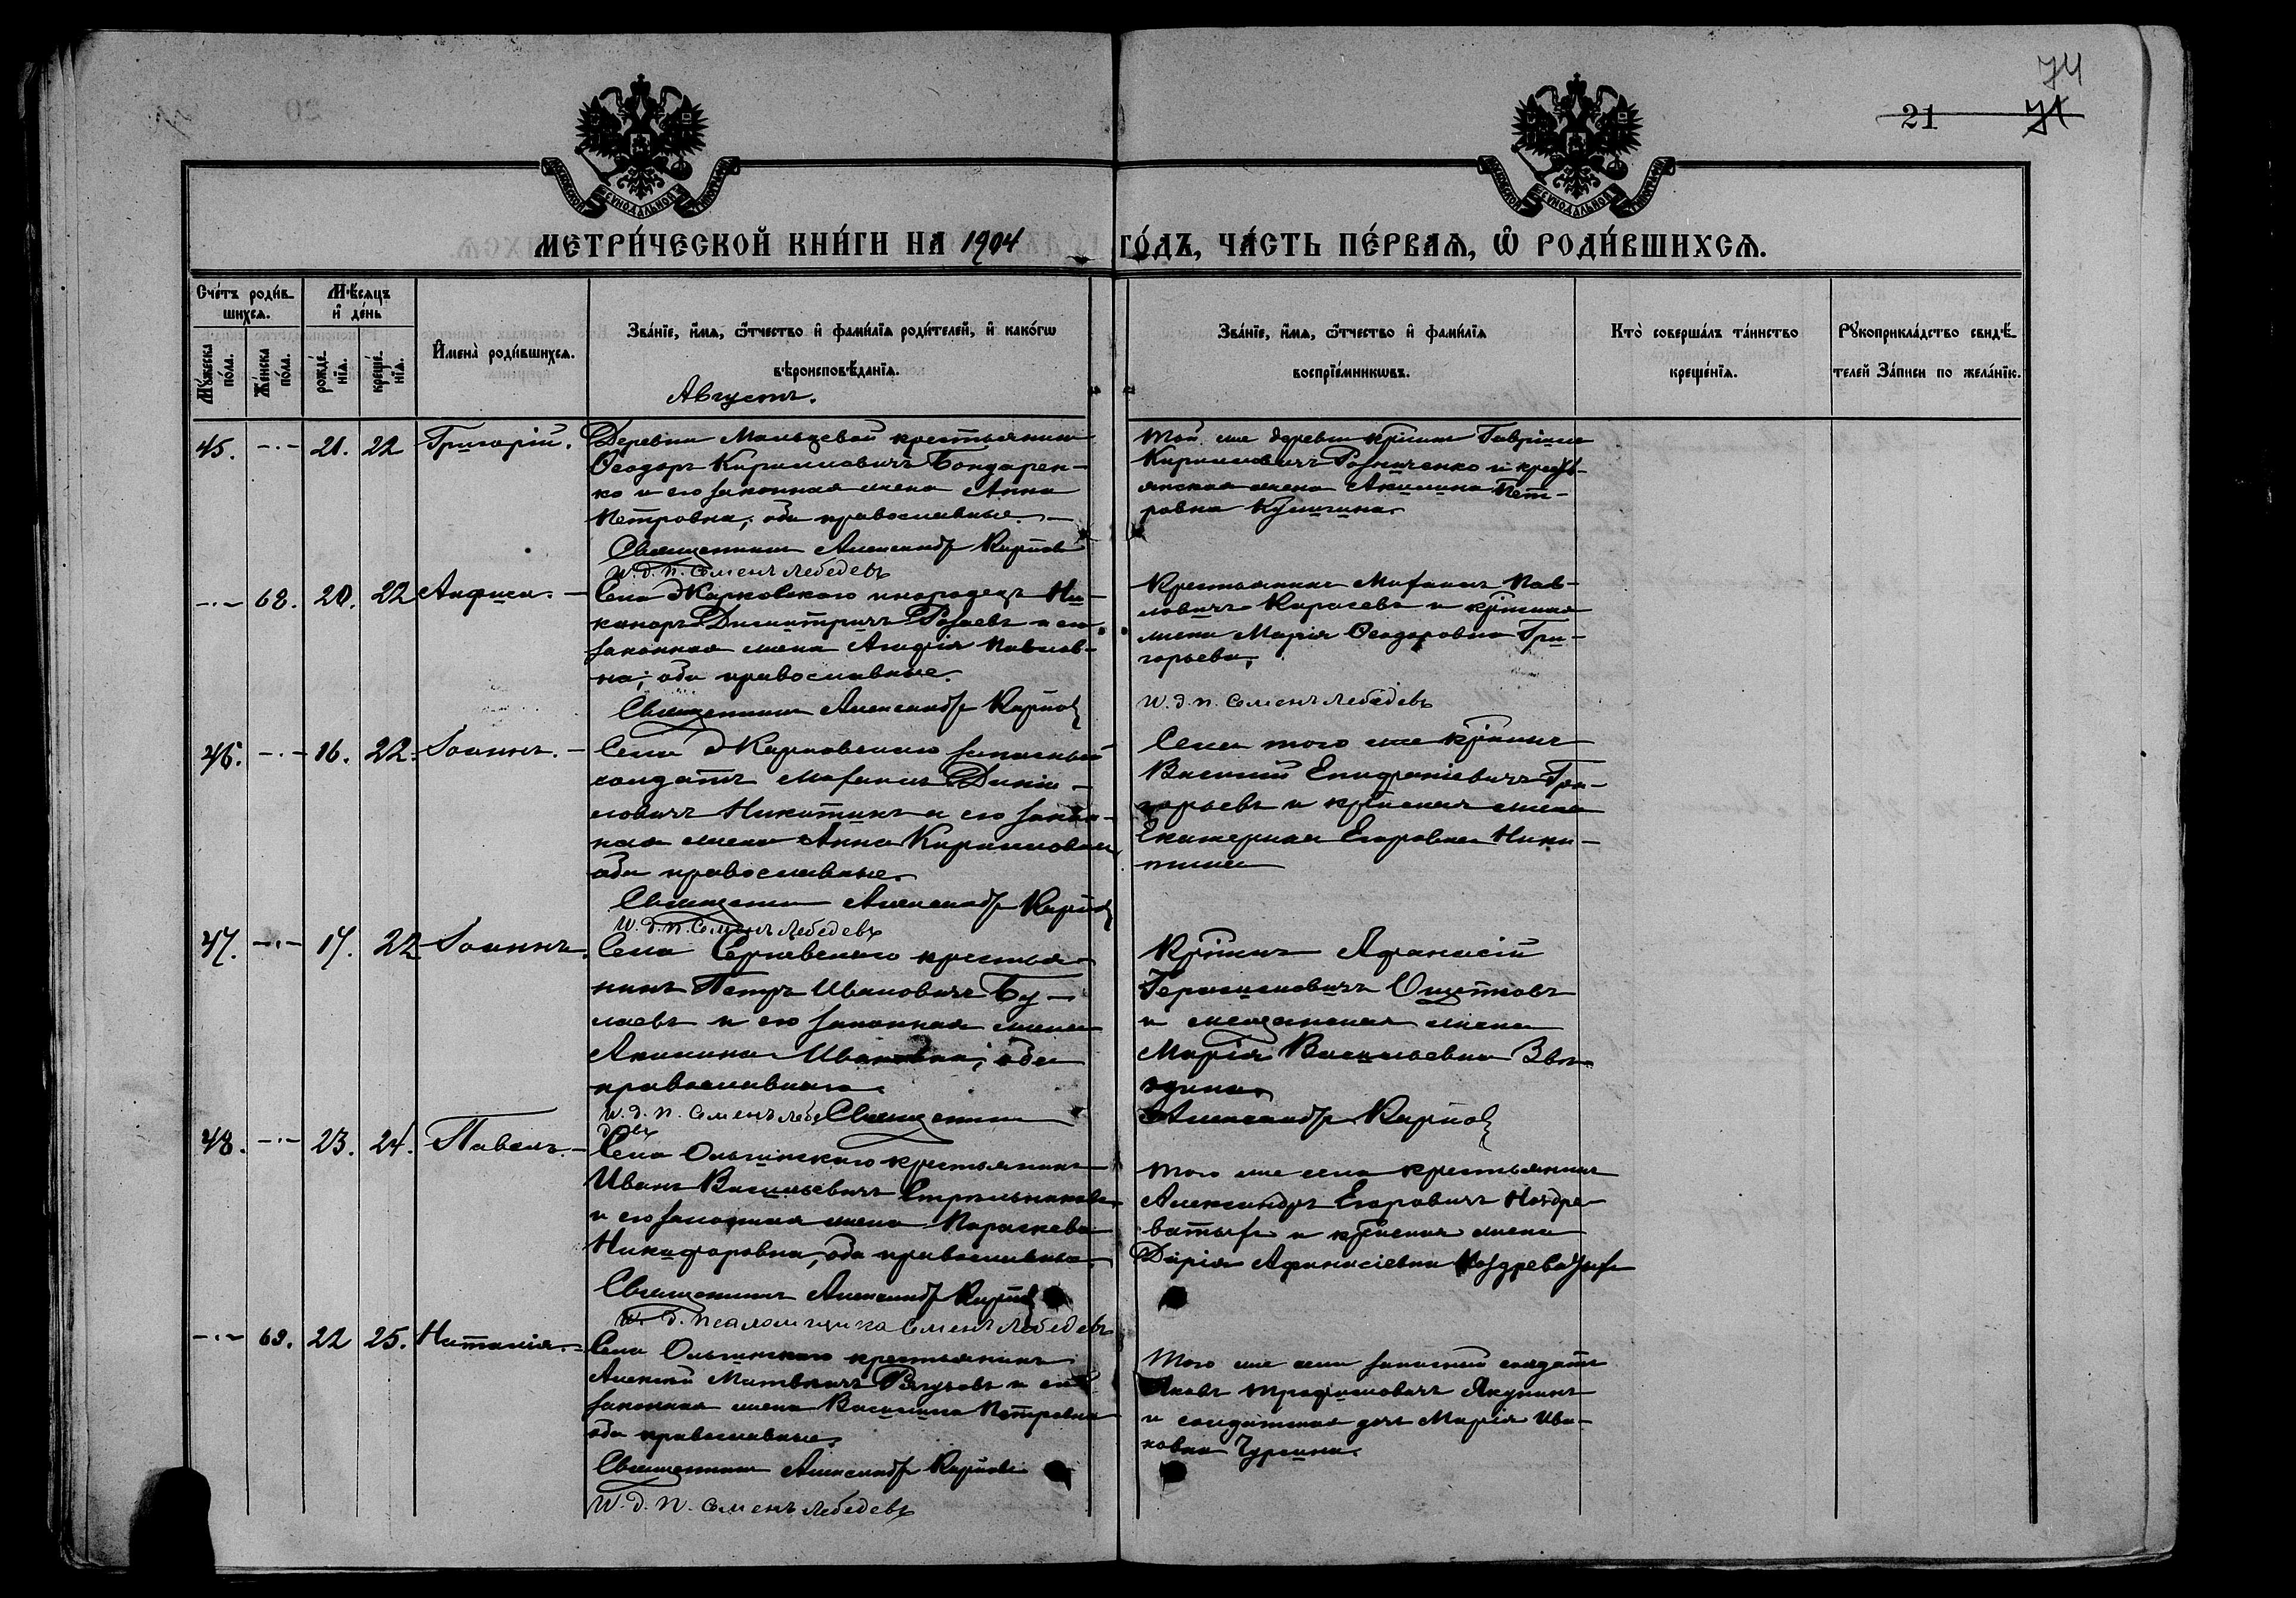 74
21 71
МЕТРИ́ЧЕСКОЙ КНИ́ГИ НА 1904 ГО́ДЪ, ЧА́СТЬ ПЕ́РВАѦ, Ѽ РОДИ́ВШИХСѦ.
Сче́тъ роди́вшихсѧ.
Мѣ́сѧцъ и҆ де́нь
Мꙋ́жеска по́ла.
Же́нска по́ла.
рожде́нїѧ.
креще́нїѧ.
И҆мена̀ роди́вшихсѧ.
Зва́нїе, и҆́мѧ, ѻ҆́тчество и҆ фами́лїѧ роди́телей, и҆ како́гѡ
вѣроисповѣ́данїѧ.
Зва́нїе, и҆́мѧ, ѻ҆́тчество и҆ фами́лїѧ
воспрїе́мникѡвъ.
Кто̀ соверша́лъ та́инство
креще́нїѧ.
Рꙋкоприкла́дство свидѣ́-
телей За́писи по жела́нїю.
Августъ.
45. -·- 21. 22 Григорій.
Деревни Мальцевой крестьянинъ
Ѳеодоръ Кирилловичъ Бондарен-
ко и его законная жена Анна
Петровна; оба православные.
Священникъ Александръ Карповъ
И. д. п. Семенъ Лебедевъ
Той же деревни кр̃нинъ Гавріилъ
Кирилловичъ и кресть-
янская жена Акилина Пет-
ровна
-·- 68. 20. 22 Анфиса.
Села Жарковского инородецъ Ни-
каноръ Димитріичъ и его
законная жена Агафія Павлов-
на; оба православные.
Священникъ Александръ Карповъ
Крестьянинъ Михаилъ Пав-
ловичъ Карасевъ и кр̃нская
жена Марія Ѳеодоровна Гри-
горьева.
И. д. п. Семенъ Лебедевъ
46. -·- 16. 22. Іоаннъ.
Села запасный
солдатъ Михаилъ Дани-
ловичъ Никитинъ и его закон-
ная жена Анна Кирилловна
оба православные.
Священникъ Александръ Карповъ
И. д. п. Семенъ Лебедевъ
Села того же кр̃нинъ
Василій Епифаніевичъ Гри-
горьевъ и кр̃нская жена
Екатерина Егоровна Ники-
тина
47. -·- 17. 22 Іоаннъ.
Села крестья-
нинъ Петръ Ивановичъ Бу-
лаевъ и его законная жена
Акилина Ивановна; оба
православные.
И. д. п. Семенъ Лебе Священникъ
девъ
Кр̃нинъ Афанасій
Герасимовичъ
и мещанская жена
Марія Васильевна Зво-
здина.
Александръ Карповъ
48. -·- 23. 24. Павелъ.
Села Ольгинского крестьянинъ
Иванъ Васильевичъ Стрельниковъ
и его законная жена Параскева
Никифоровна, оба православные
Священникъ Александръ Карповъ
И. д. псаломщика Семенъ Лебедевъ
Того же села крестьянинъ
Александръ Егоровичъ Ноздре-
ватыхъ и кр̃нская жена
Дарія Афанасіевна Ноздреватыхъ
-·- 69. 22 25. Наталія.
Села Ольгинского крестьянинъ
Алексій Матвѣичъ и его
законная жена Василиса Петровна
оба православные.
Священникъ Александръ Карповъ
И. д. п. Семенъ Лебедевъ
Того же села запасный солдатъ
Яковъ Трофимовичъ Якунинъ
и солдатская дочь Марія Ива-
новна Чурсина.